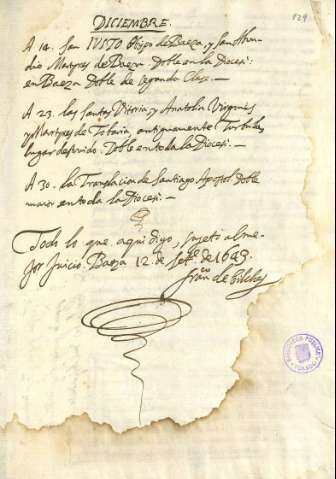 DICIEMBRE.
829
A 14. San IUSTO Obispo de Baeza, y San Abun-
dio Martyres de Baeza Doble en toda la Diocesi:
en Baeza Doble de segunda Clase.
A 23. las Santas Vitoria, y Anatolia Virgines
y Martyres de Tobaria, antiguamente
lugar destruido: Doble en toda la Diocesi.
A 30. la Translacion de Santiago Apostol Doble
maior en toda la Diocesi.
Todo lo que aqui digo, sujeto al me-
jor Juicio. Baeza 12 de de 1649.
Franco de Bilches
BIBLIOTECA PUBLICA
TOLEDO